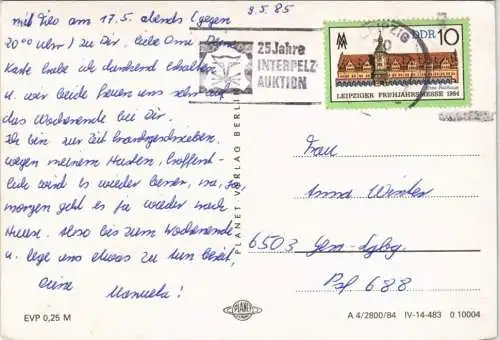 9.5.85
mit Zeo am 17.5. abends (gegen
20°° Uhr) zu Dir. Liebe Oma Deine
Karte habe ich dankend erhalten
u. wir beide freuen uns sehr auf
das Wochenende bei Dir.
Ich bin zur Zeit krankgeschrieben,
wegen meinem Husten, hoffent-
lich wird es wieder besser, na, ja,
morgen geht es ja wieder nach
Hause. Also bis zum Wochenende
u. lege uns etwas zu tun bereit,
Eure
Manuela!
EVP 0,25 M
PLANET-VERLAG BERLIN
PLANET
25 Jahre
INTERPELZ-
AUKTION
LEIPZIG
DDR 10
Altes Rathaus
LEIPZIGER FRÜHJAHRSMESSE 1984
Frau
Anna Winter
6503 Gera-
Psf 688
A 4/2800/84 IV-14-483 0 10004